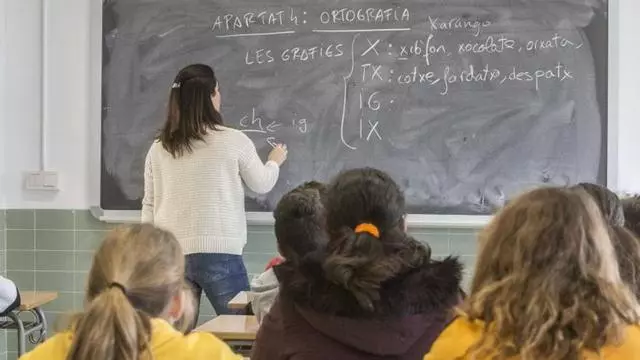 APARTAT 4: ORTOGRAFIA
Xarango
LES GRAFIES
X: xifon, xocolate, orxata,
TX: cotxe, fardatxo, despatx
IG:
IX
ch ← ig